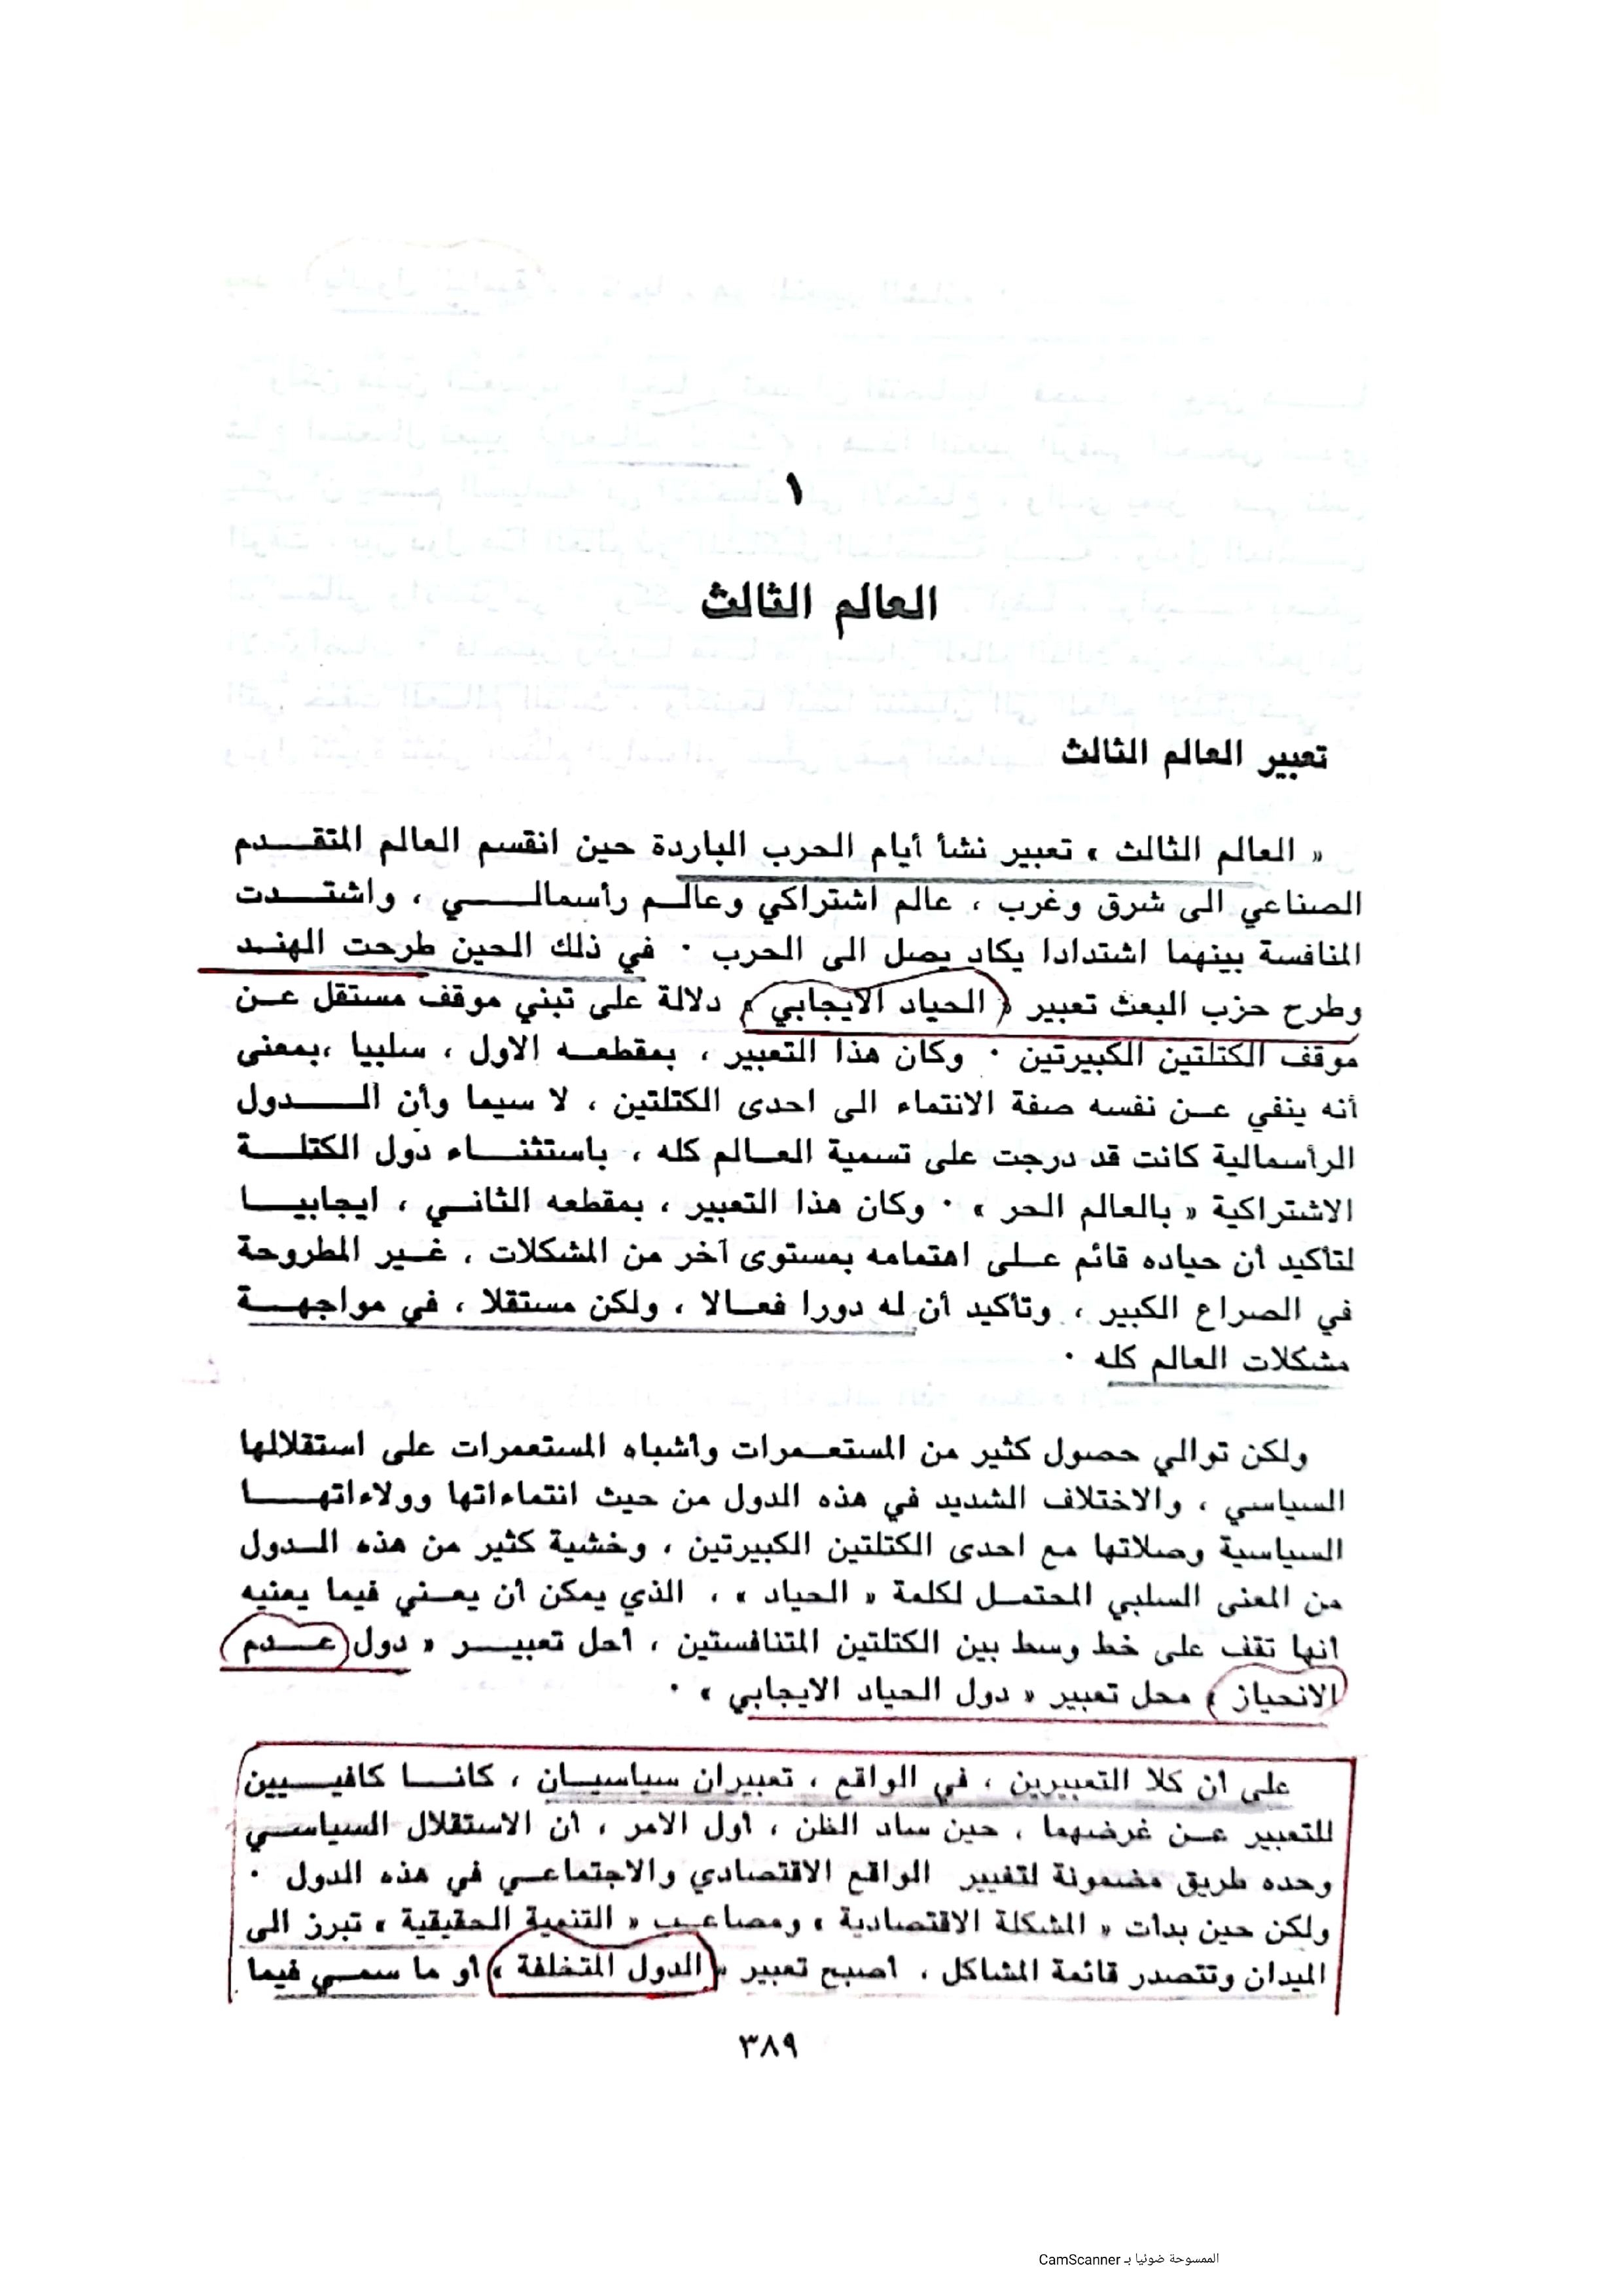 ١
العالم الثالث
تعبير العالم الثالث
« العالم الثالث » تعبير نشأ أيام الحرب الباردة حين انقسم العالم المتقدم
الصناعي الى شرق وغرب ، عالم اشتراكي وعالم رأسمالي ، واشتدت
المنافسة بينهما اشتدادا يكاد يصل الى الحرب · في ذلك الحين طرحت الهند
وطرح حزب البعث تعبير « الحياد الايجابي » دلالة على تبني موقف مستقل عن
موقف الكتلتين الكبيرتين · وكان هذا التعبير ، بمقطعه الاول ، سلبيا ،بمعنى
أنه ينفي عن نفسه صفة الانتماء الى احدى الكتلتين ، لا سيما وأن الدول
الرأسمالية كانت قد درجت على تسمية العالم كله ، باستثناء دول الكتلة
الاشتراكية « بالعالم الحر » · وكان هذا التعبير ، بمقطعه الثاني ، ايجابيا
لتأكيد أن حياده قائم على اهتمامه بمستوى آخر من المشكلات ، غير المطروحة
في الصراع الكبير ، وتأكيد أن له دورا فعالا ، ولكن مستقلا ، في مواجهة
مشكلات العالم كله ·
ولكن توالي حصول كثير من المستعمرات وأشباه المستعمرات على استقلالها
السياسي ، والاختلاف الشديد في هذه الدول من حيث انتماءاتها وولاءاتها
السياسية وصلاتها مع احدى الكتلتين الكبيرتين ، وخشية كثير من هذه الدول
من المعنى السلبي المحتمل لكلمة « الحياد » ، الذي يمكن أن يعني فيما يعنيه
انها تقف على خط وسط بين الكتلتين المتنافستين ، أحل تعبير « دول عدم
الانحياز » محل تعبير « دول الحياد الايجابي » ·
على ان كلا التعبيرين ، في الواقع ، تعبيران سياسيان ، كانا كافيين
للتعبير عن غرضهما ، حين ساد الظن ، أول الامر ، أن الاستقلال السياسي
وحده طريق مضمونة لتغيير الواقع الاقتصادي والاجتماعي في هذه الدول ·
ولكن حين بدأت « المشكلة الاقتصادية » ومصاعب « التنمية الحقيقية » تبرز الى
الميدان وتتصدر قائمة المشاكل ، أصبح تعبير « الدول المتخلفة » أو ما سمي فيما
٣٨٩
الممسوحة ضوئيا بـ CamScanner